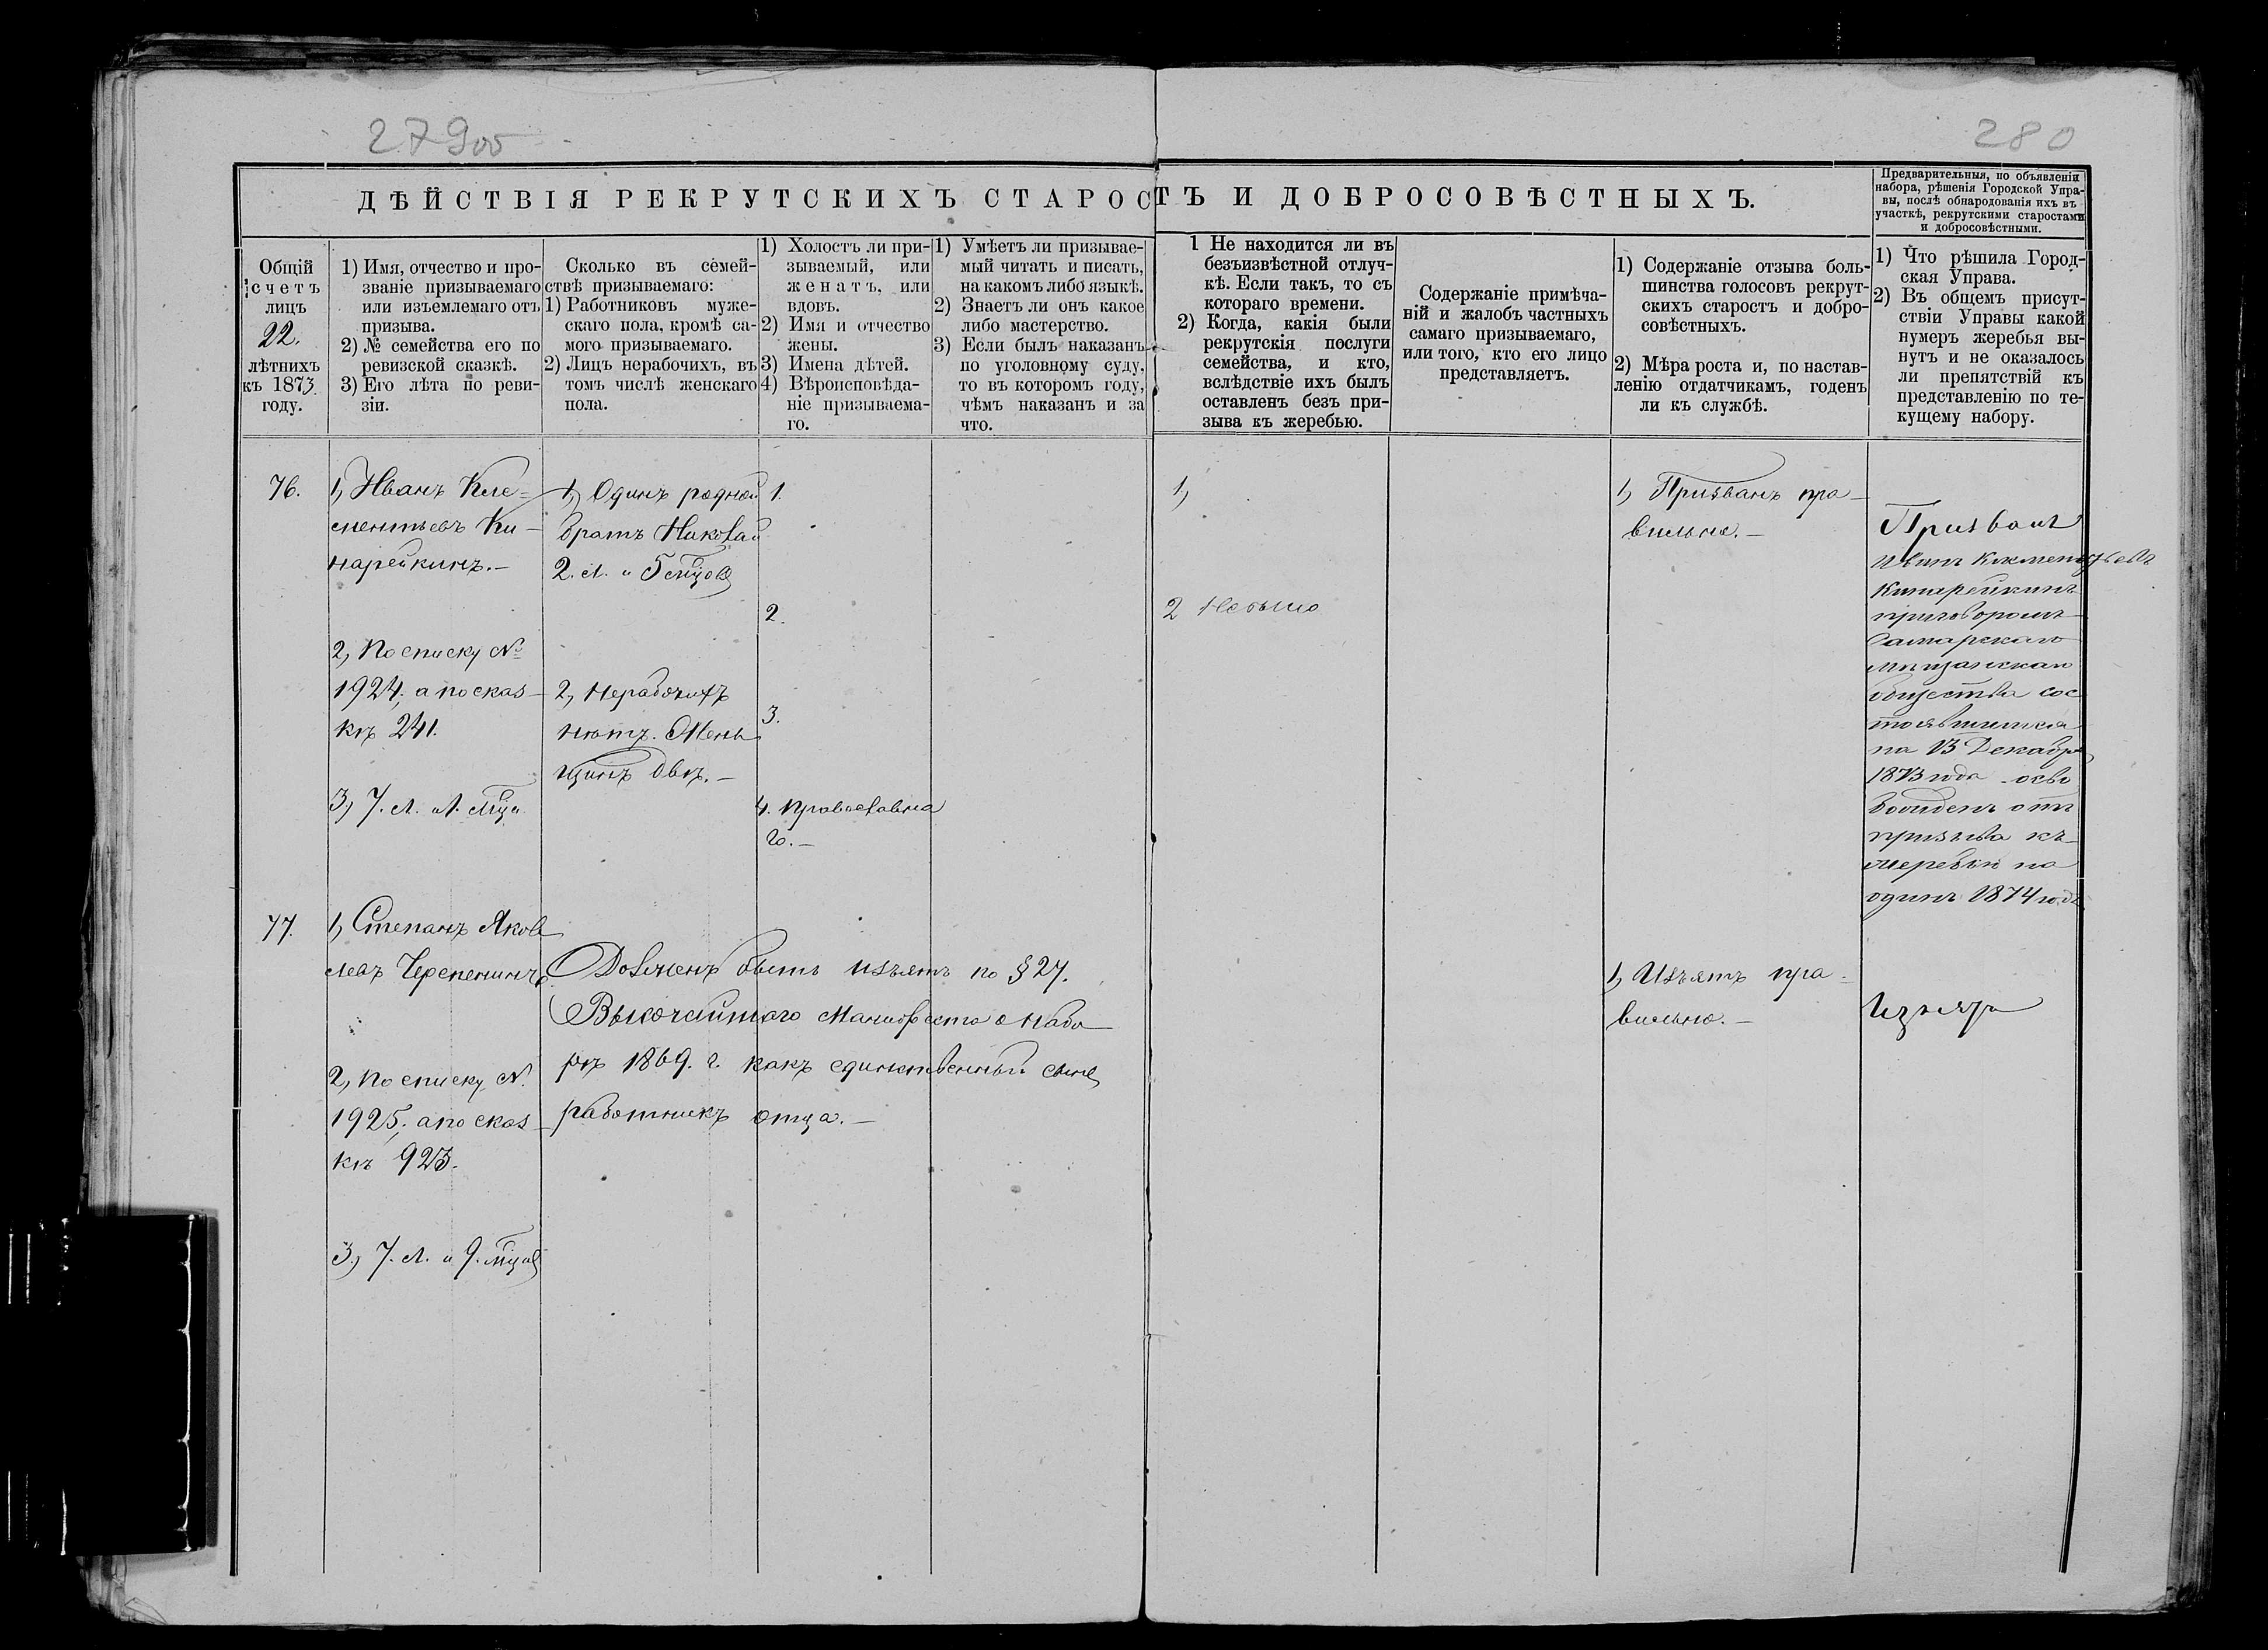 279об
280
ДѢЙСТВІЯ РЕКРУТСКИХЪ СТАРОСТЪ И ДОБРОСОВѢСТНЫХЪ.
Предварительныя, по объявленіи
набора, рѣшенія Городской Упра-
вы, послѣ обнародованія ихъ въ
участкѣ, рекрутскими старостами
и добросовѣстными.
Общій
счетъ
лицъ
22.
лѣтнихъ
къ 1873.
году.
1) Имя, отчество и про-
званіе призываемаго
или изъемлемаго отъ
призыва.
2) № семейства его по
ревизской сказкѣ.
3) Его лѣта по реви-
зіи.
Сколько въ семей-
ствѣ призываемаго:
1) Работниковъ муже-
скаго пола, кромѣ са-
мого призываемаго.
2) Лицъ нерабочихъ, въ
томъ числѣ женскаго
пола.
1) Холостъ ли при-
зываемый, или
женатъ, или
вдовъ.
2) Имя и отчество
жены.
3) Имена дѣтей.
4) Вѣроисповѣда-
ніе призываема-
го.
1) Умѣетъ ли призывае-
мый читать и писать,
на какомъ либо языкѣ.
2) Знаетъ ли онъ какое
либо мастерство.
3) Если былъ наказанъ
по уголовному суду,
то въ которомъ году,
чѣмъ наказанъ и за
что.
1 Не находится ли въ
безъизвѣстной отлуч-
кѣ. Если такъ, то съ
котораго времени.
2) Когда, какія были
рекрутскія послуги
семейства, и кто,
вслѣдствіе ихъ былъ
оставленъ безъ при-
зыва къ жеребью.
Содержаніе примѣча-
ній и жалобъ частныхъ
самаго призываемаго,
или того, кто его лицо
представляетъ.
1) Содержаніе отзыва боль-
шинства голосовъ рекрут-
скихъ старостъ и добро-
совѣстныхъ.
2) Мѣра роста и, по настав-
ленію отдатчикамъ, годенъ
ли къ службѣ.
1) Что рѣшила Город-
ская Управа.
2) Въ общемъ присут-
ствіи Управы какой
нумеръ жеребья вы-
нутъ и не оказалось
ли препятствій къ
представленію по те-
кущему набору.
76.
1, Иванъ Кле=
ментьевъ Ки-
нарейкинъ.-
2, По списку №
1924, а по сказ-
кѣ 241.
3, 7. л. и 1. мѣц
1, Одинъ родной
братъ Николай
2. л. и 5 мѣцов
2, Нерабочихъ
нѣтъ. Жен
щинъ двѣ.-
1.
2.
3.
4. Православна
го.-
1,
2 Небыло
1, Призванъ пра-
вильно.-
Призванъ
Иванъ Клементьевъ
Кинарейкинъ
приговоромъ
Самарскаго
Мѣщанскаго
общества сос
тоявшимся
на 13 Декабр
1873 года осво
божденъ отъ
призыва къ
жеребью на
одинъ 1874 годъ
77.
1, Степанъ Яков
левъ Черепенинъ
2, По списку №
1925, а по сказ-
кѣ 923.
3, 7. л. и 9. мѣцов
Долженъ быть изъятъ по § 27.
Высочайшаго Манифеста о набо
рѣ 1869. г. какъ единственный сынъ
работникъ отца.-
1, Изъятъ пра-
вильно.-
Изъятъ